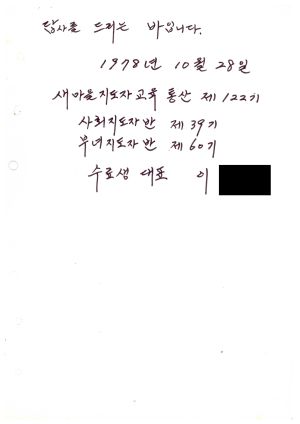 답사를 드리는 바입니다.
1978년 10월 28일
새마을지도자교육 통산 제122기
사회지도자반 제39기
부녀지도자반 제60기
수료생 대표 이